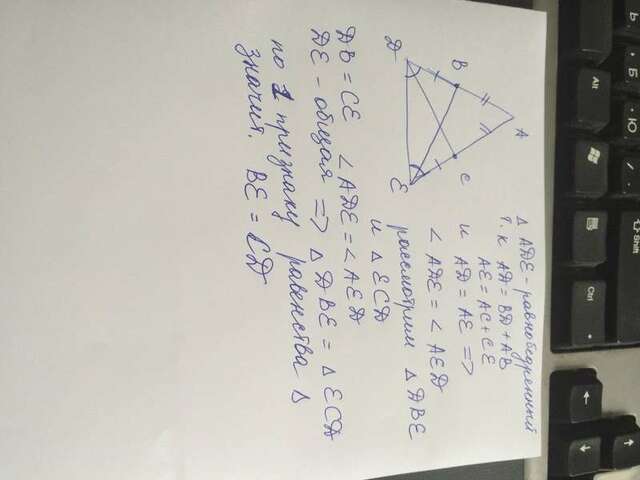 Д
В
А
С
Е
Δ АДЕ - равнобедренный
т.к АД = ВД + АВ
АЕ = АС + СЕ
и АД = АЕ =>
∠ АДЕ = ∠ АЕД
рассмотрим Δ ДВЕ
и Δ ЕСД
ДВ = СЕ ∠ АДЕ = ∠ АЕД
ДЕ - общая => Δ ДВЕ = Δ ЕСД
по 1 признаку равенства Δ
значит. ВЕ = СД
Alt
Shift
Ctrl
Б
Ю